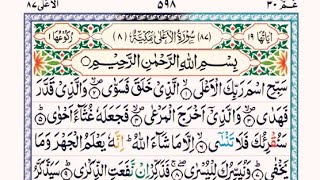 عَمَّ ٣٠ ٥٩٨ الاعلى ٨٧
اٰيَاتُهَا ١٩ (٨٧) سُوْرَةُ الْاَعْلٰى مَكِّيَّةٌ (٨) رُكُوْعُهَا ١
بِسْمِ اللّٰهِ الرَّحْمٰنِ الرَّحِيْمِ
سَبِّحِ اسْمَ رَبِّكَ الْاَعْلَى ۙ الَّذِيْ خَلَقَ فَسَوّٰى ۙ وَالَّذِيْ قَدَّرَ
فَهَدٰى ۙ وَالَّذِيْٓ اَخْرَجَ الْمَرْعٰى ۙ فَجَعَلَهٗ غُثَآءً اَحْوٰى ؕ
سَنُقْرِئُكَ فَلَا تَنْسٰٓى ۙ اِلَّا مَا شَآءَ اللّٰهُ ؕ اِنَّهٗ يَعْلَمُ الْجَهْرَ وَمَا
يَخْفٰى ؕ وَنُيَسِّرُكَ لِلْيُسْرٰى ۚ فَذَكِّرْ اِنْ نَّفَعَتِ الذِّكْرٰى ؕ سَيَذَّكَّرُ